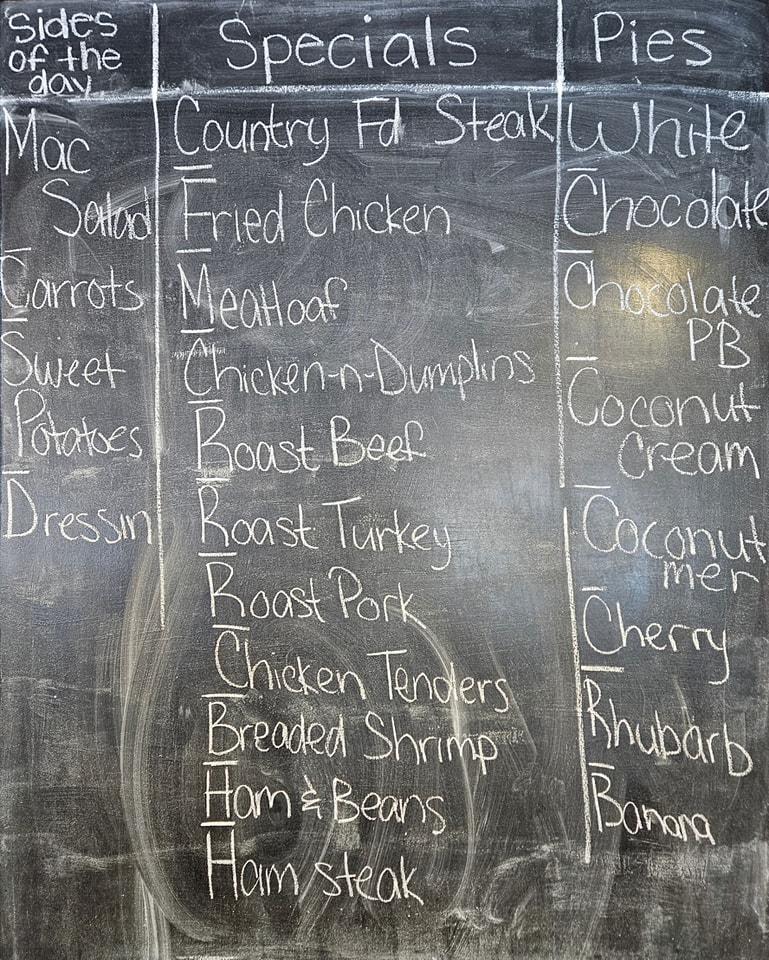 Sides
of the
day
Mac
Salad
Carrots
Sweet
Potatoes
Dressin
Specials
Country Fd Steak
Fried Chicken
Meatloaf
Chicken-n-Dumplins
Roast Beef
Roast Turkey
Roast Pork
Chicken Tenders
Breaded Shrimp
Ham & Beans
Ham steak
Pies
White
Chocolate
Chocolate
PB
Coconut
Cream
Coconut
mer
Cherry
Rhubarb
Banana